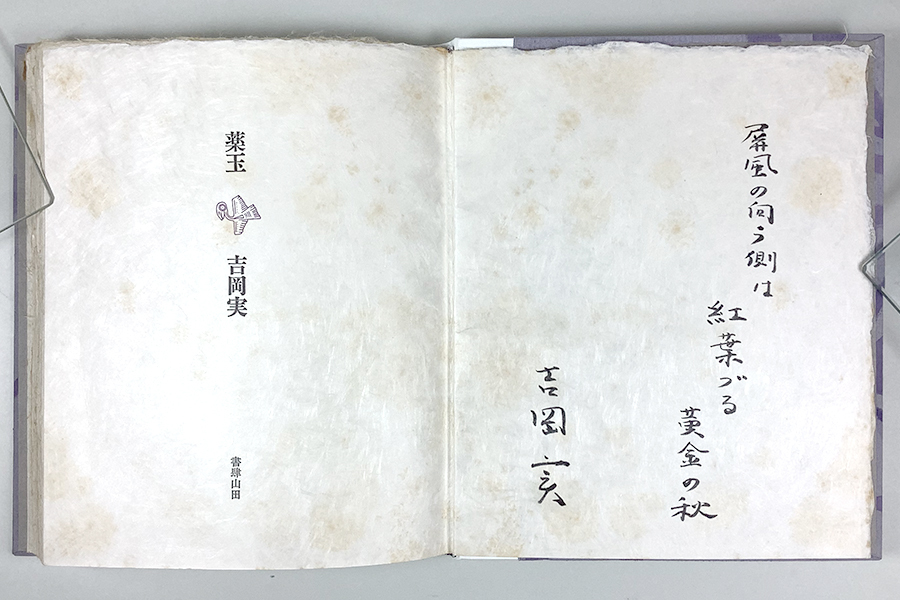 屏風の向う側は
紅葉づる
黄金の秋
吉岡実
薬玉
吉岡実
書肆山田